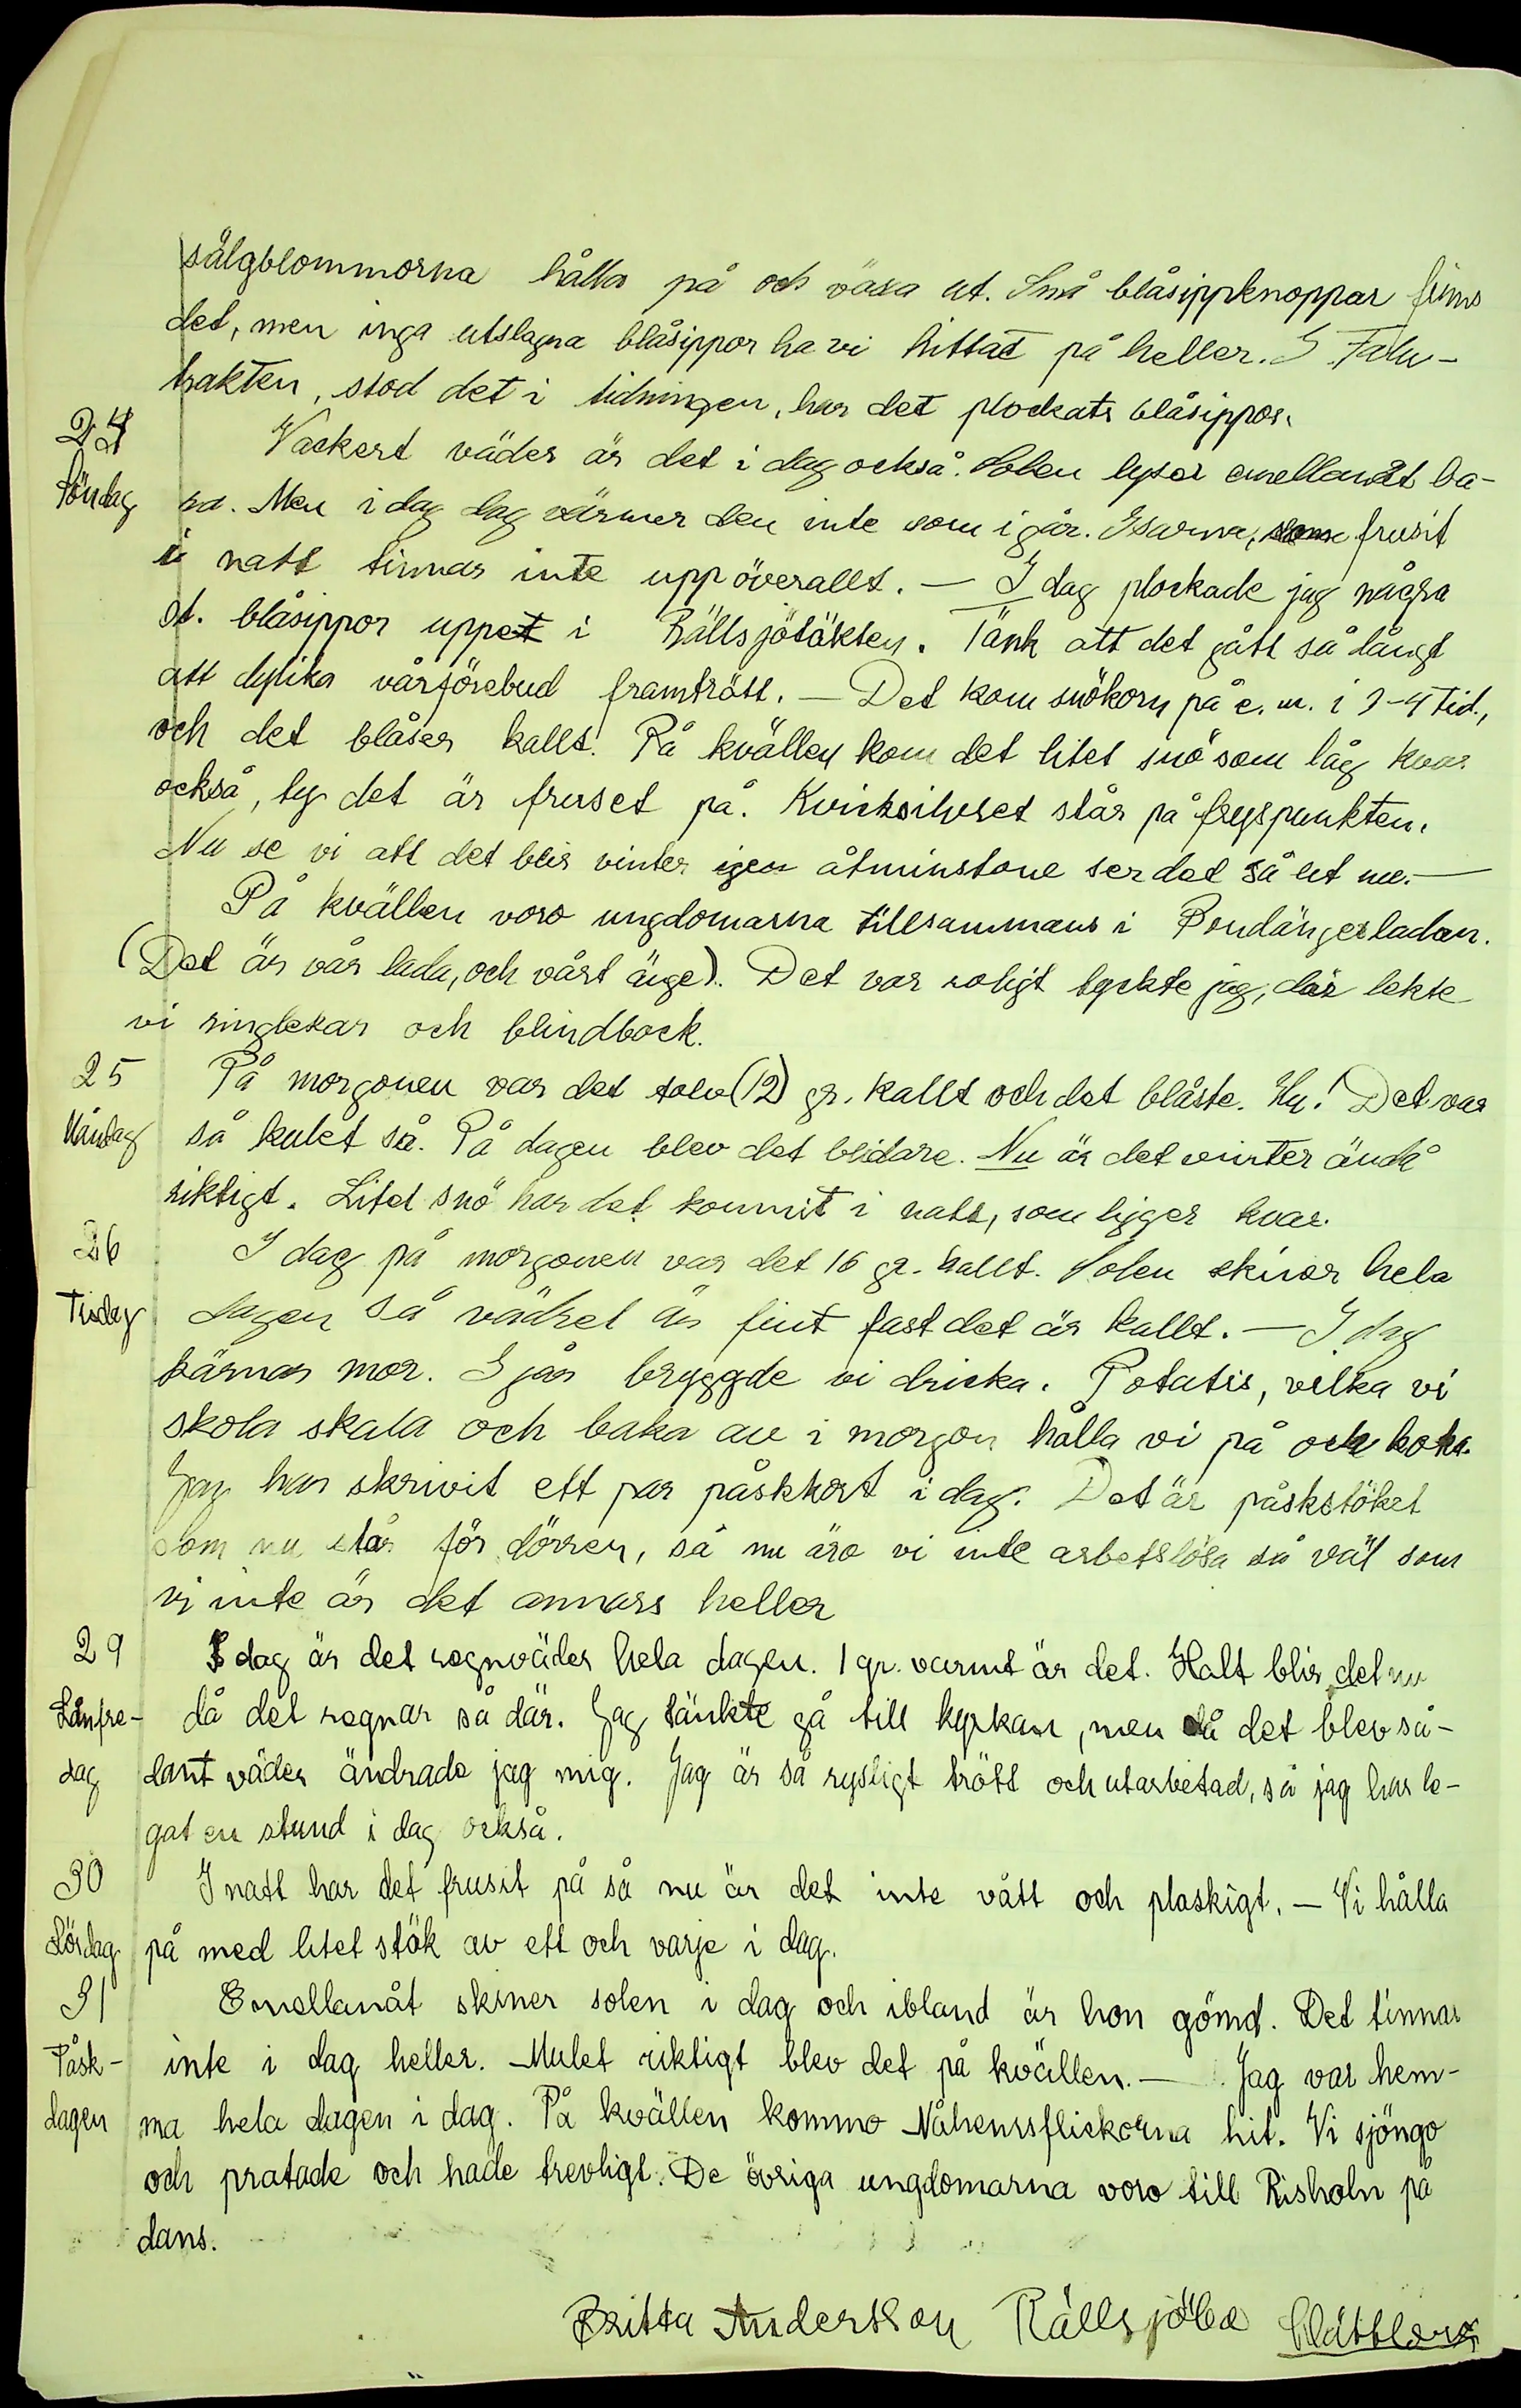 sälgblommorna hålla på och växa ut. Små blåsippknoppar finns
det, men inga utslagna blåsippor ha vi hittat på heller. I Falu-
trakten, stod det i tidningen, har det plockats blåsippor.
24 Vackert väder är det i dag också. Solen lyser emellanåt ba-
Söndag ra. Men i dag dag värmer den inte som i går. Isarna, som frusit
i natt tinnar inte upp överallt. — I dag plockade jag några
st. blåsippor uppet i Rällsjötäkten. Tänk att det gått så långt
att dylika vårförebud framträtt. — Det kom snökorn på e. m. i 3-4 tid.,
och det blåser kallt. På kvällen kom det litet snö som låg kvar
också, ty det är fruset på. Kvicksilvret står på fryspunkten.
Nu se vi att det blir vinter igen åtminstone ser det så ut nu. —
På kvällen voro ungdomarna tillsammans i Rondängesladan.
(Det är vår lada, och vårt änge). Det var roligt tyckte jag, där lekte
vi ringlekar och blindbock.
25 På morgonen var det tolv (12) gr. kallt och det blåste. Hu! Det var
Måndag så kulet så. På dagen blev det blidare. Nu är det vinter ändå
riktigt. Litet snö har det kommit i natt, som ligger kvar.
26 I dag på morgonen var det 16 gr. kallt. Solen skiner hela
Tisdag dagen så vädret är fint fast det är kallt. — I dag
kärnar mor. I går bryggde vi dricka. Potatis, vilka vi
skola skala och baka av i morgon hålla vi på och koka.
Jag har skrivit ett par påskkort i dag. Det är påskstöket
som nu står för dörren, så nu äro vi inte arbetslösa så väl som
vi inte är det annars heller
29 I dag är det regnväder hela dagen. 1 gr. varmt är det. Halt blir det nu
Långfre- då det regnar så där. Jag tänkte gå till kyrkan, men då det blev så-
dag dant väder ändrade jag mig. Jag är så rysligt trött och utarbetad, så jag har le-
gat en stund i dag också.
30 I natt har det frusit på så nu är det inte vått och plaskigt. — Vi hålla
Lördag på med litet stök av ett och varje i dag.
31 Emellanåt skiner solen i dag och ibland är hon gömd. Det tinnar
Påsk- inte i dag heller. Mulet riktigt blev det på kvällen. — Jag var hem-
dagen ma hela dagen i dag. På kvällen kommo Nåhensflickorna hit. Vi sjöngo
och pratade och hade trevligt. De övriga ungdomarna voro till Risholn på
dans.
Britta Andersson Rällsjöbo